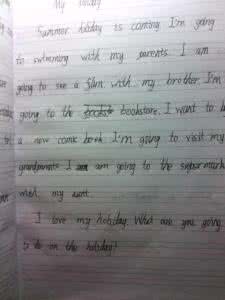 My holiday
Summer holiday is coming. I'm going
to swimming with my parents. I am
going to see a film with my brother. I'm
going to the bookstore. I want to b
a new comic book. I'm going to visit my
grandparents. I am going to the supermark
with my aunt.
I love my holiday. What are you going
to do on the holiday?